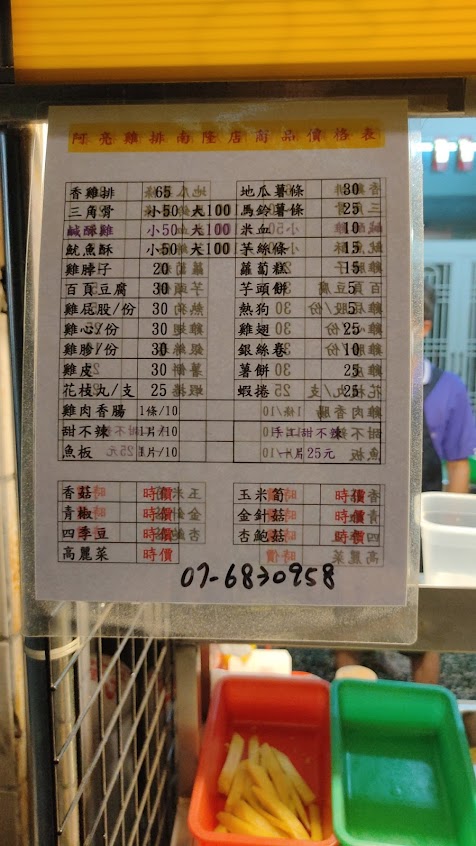 阿亮雞排南隆店商品價格表
香雞排 65 地瓜薯條 30
三角骨 小50 大100 馬鈴薯條 25
鹹酥雞 小50 大100 米血 10
魷魚酥 小50 大100 芋絲條 15
雞脖子 20 蘿蔔糕 15
百頁豆腐 30 芋頭餅 10
雞屁股/份 30 熱狗 5
雞心/份 30 雞翅 25
雞胗/份 30 銀絲卷 10
雞皮 30 薯餅 25
花枝丸/支 25 蝦捲 25
雞肉香腸 1條/10
甜不辣 1片/10 手工甜不辣
魚板 1片/10 1片25元
香菇 時價 玉米筍 時價
青椒 時價 金針菇 時價
四季豆 時價 杏鮑菇 時價
高麗菜 時價
07-6830958